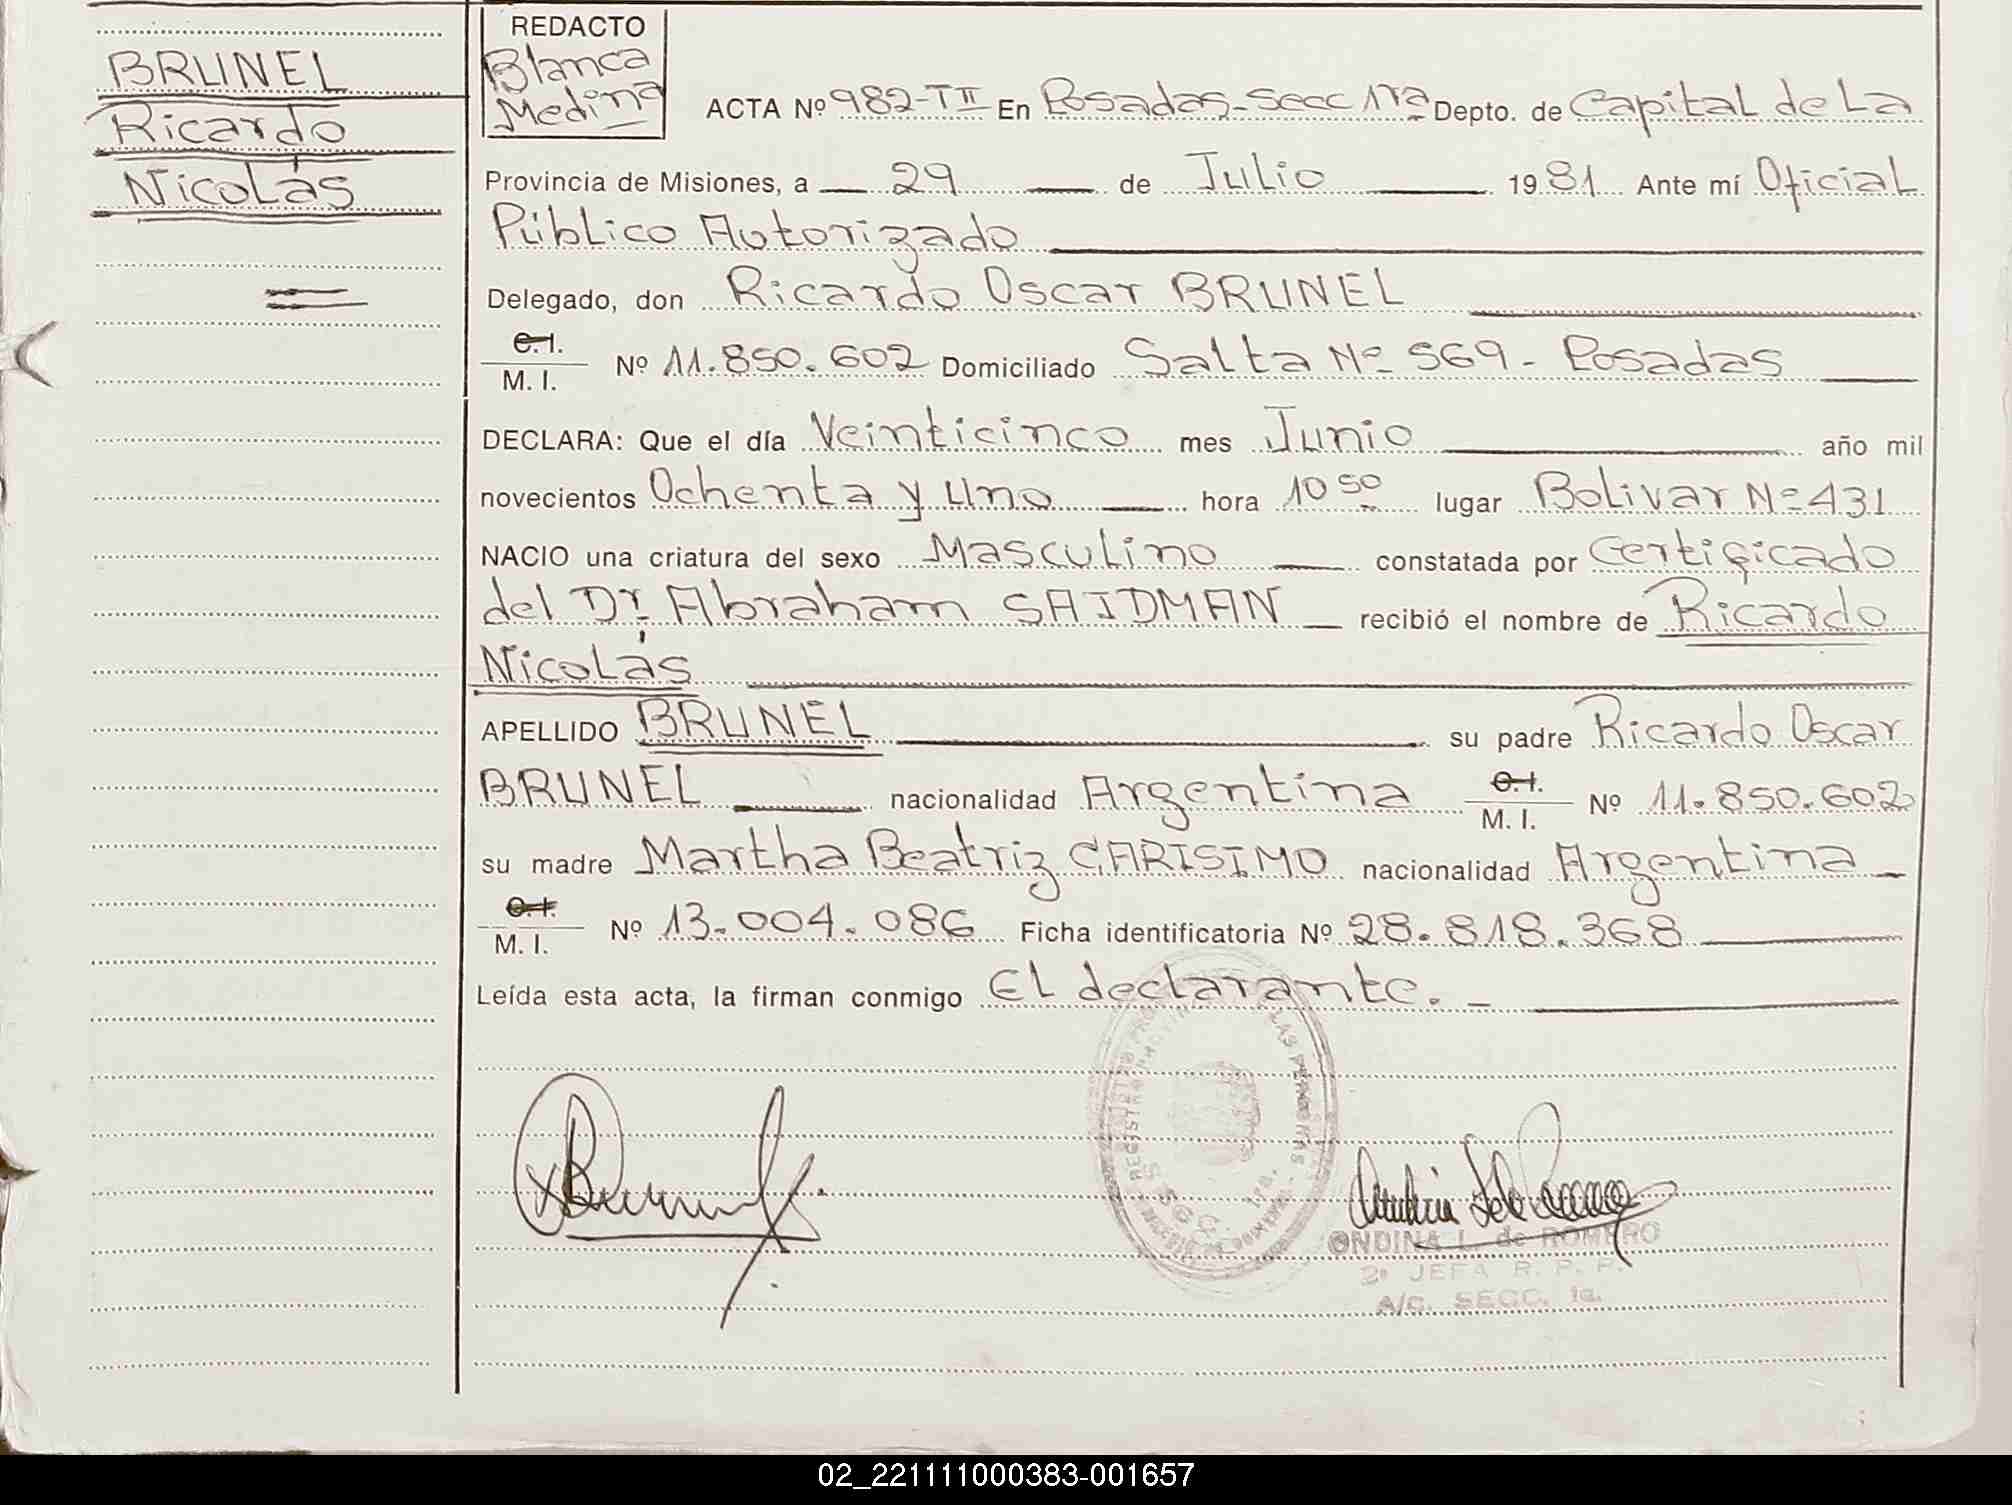 BRUNEL
Ricardo
Nicolás
REDACTO
Blanca
Medina
ACTA Nº 982-TII En Posadas-Secc 1ra Depto. de Capital de La
Provincia de Misiones, a 29 de Julio 1981 Ante mí Oficial
Público Autorizado
Delegado, don Ricardo Oscar BRUNEL
C.I.
M. I. Nº 11.850.602 Domiciliado Salta Nº 569 - Posadas
DECLARA: Que el día Veinticinco mes Junio año mil
novecientos Ochenta y Uno hora 10 50 lugar Bolivar Nº 431
NACIO una criatura del sexo Masculino constatada por Certificado
del Dr. Abraham SAIDMAN recibió el nombre de Ricardo
Nicolás
APELLIDO BRUNEL su padre Ricardo Oscar
BRUNEL nacionalidad Argentina C.I. M. I. Nº 11.850.602
su madre Martha Beatriz CARISIMO nacionalidad Argentina
C.I.
M. I. Nº 13.004.086 Ficha identificatoria Nº 28.818.368
Leída esta acta, la firman conmigo El declarante. -
ONDINA L. de ROMERO
2º JEFA R. P. P.
A/C. SECC. 1a.
02_221111000383-001657